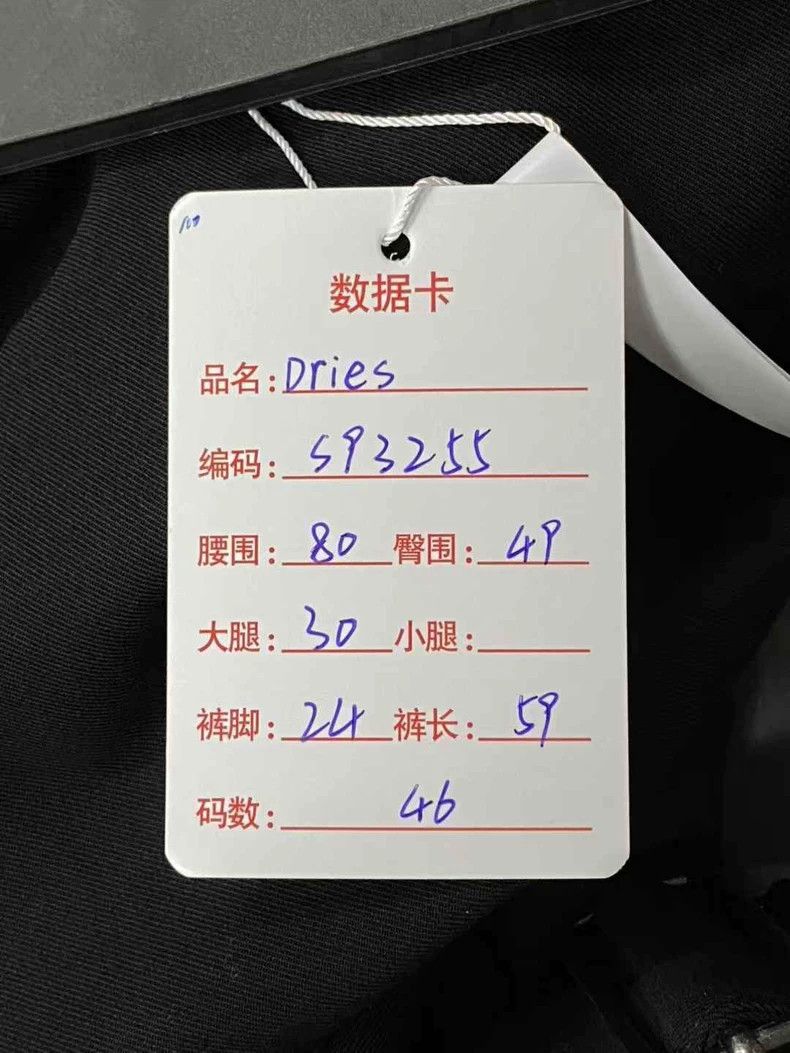 数据卡
品名: Dries
编码: S93255
腰围: 80 臀围: 49
大腿: 30 小腿:
裤脚: 24 裤长: 59
码数: 46